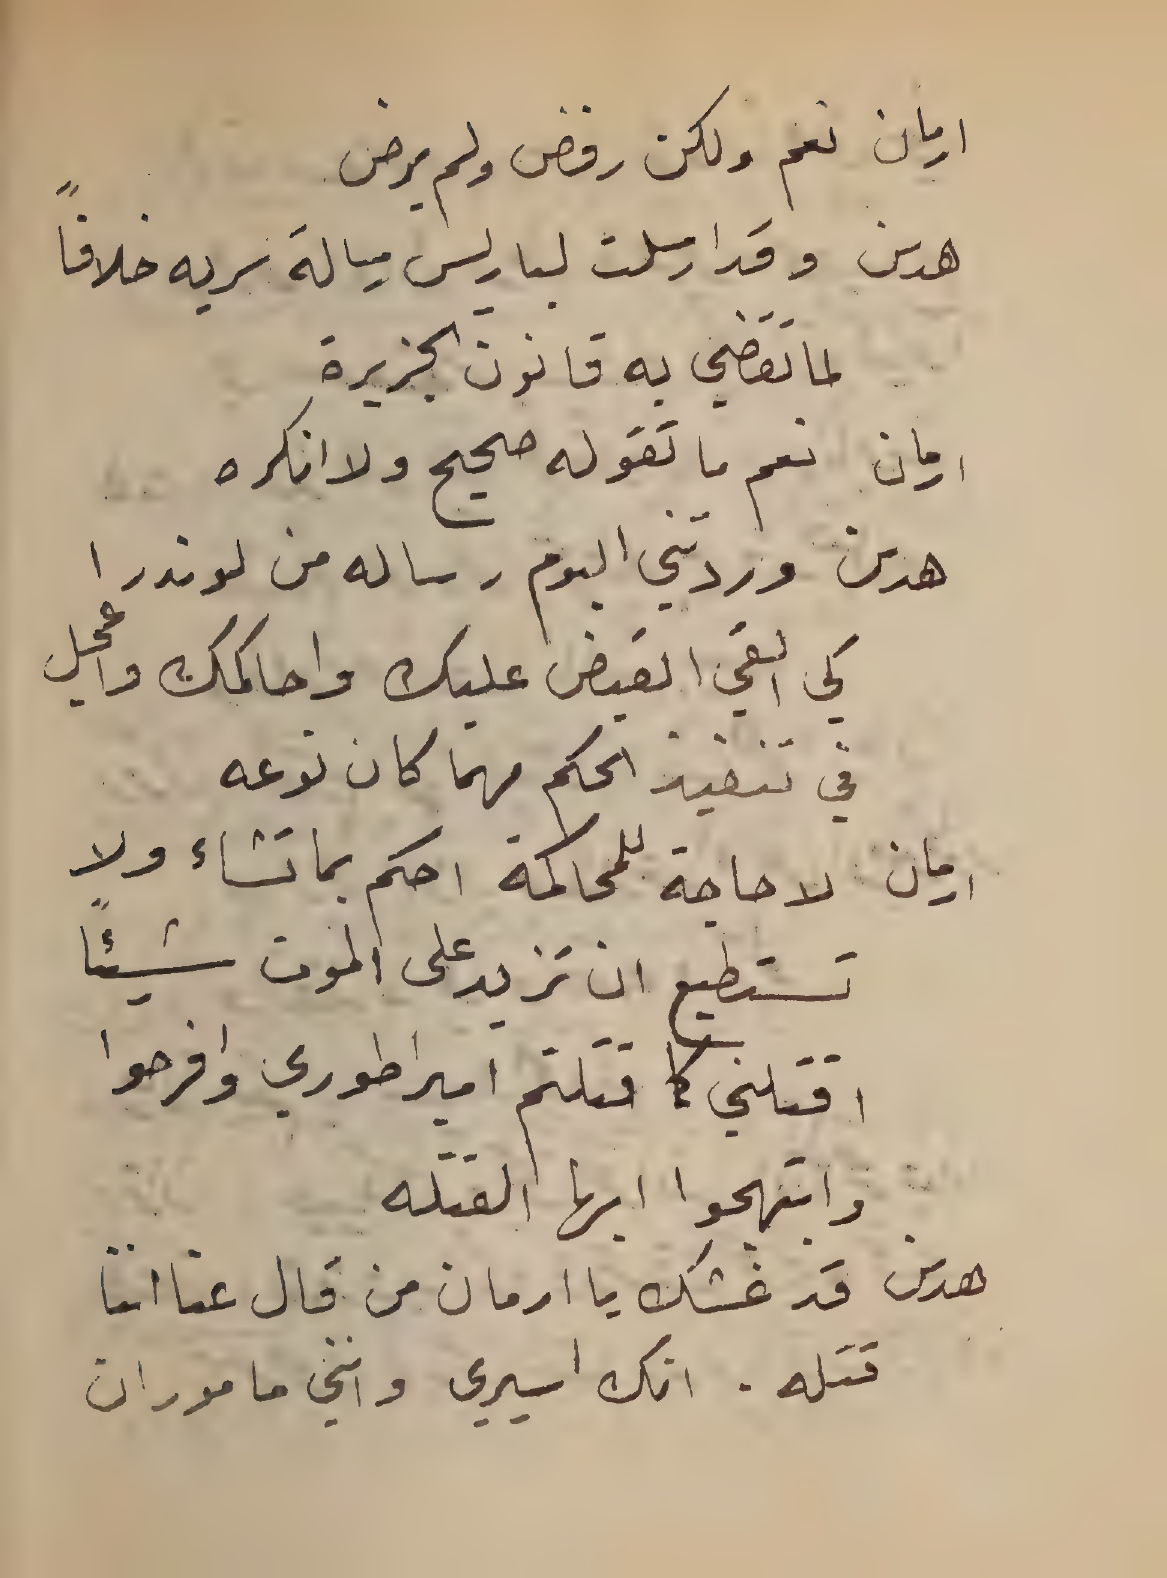 ارمان نعم ولكن رفض ولم يرض
هدسن وقد ارسلت لباريس رسالة سريه خلافاً
لما تقضي به قانون الجزيرة
ارمان نعم ما تقوله صحيح ولا انكره
هدسن وردتني اليوم رساله من لوندرا
كي القي القبض عليك واحاكمك واعجل
في تنفيذ الحكم مهما كان نوعه
ارمان لا حاجة للمحاكمة احكم بما تشاء ولا
تستطيع ان تزيد على الموت شيئاً
اقتلني كما قتلتم امبراطوري وافرحوا
وابتهجوا ايها القتله
هدسن قد غشك يا ارمان من قال عنا اننا
قتله . انك اسيري وانني مامور ان